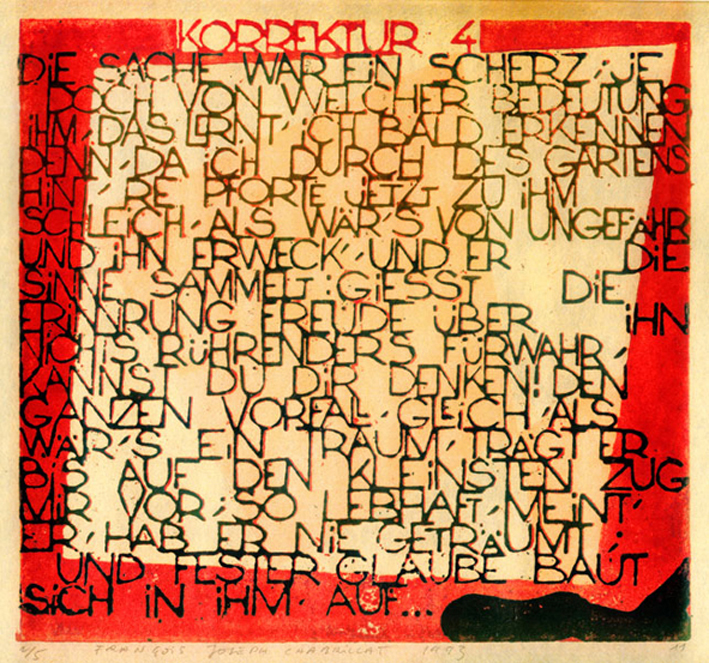 KORREKTUR 4
DiE SACHE WAR EiN SCHERZ; JE
DOCH VON WELCHER BEDEUTUNG
iHM, DAS LERNT' iCH BALD ERKENNEN
DENN DA iCH DURCH DES GARTENS
HiNT'RE PFORTE JETZT ZU iHM
SCHLEiCH, ALS WÄR'S VON UNGEFÄHR
UND iHN ERWECK', UND ER DiE
SiNNE SAMMELT: GiESST DiE
ERiNNRUNG FREUDE ÜBER iHN
NiCHTS RÜHRENDERS FÜRWAHR,
KANNST DU DiR DENKEN. DEN
GANZEN VORFALL, GLEiCH, ALS
WÄR'S EiN TRAUM, TRÄGT ER
BiS AUF DEN KLEiNSTEN ZUG
MiR VOR; SO LEBHAFT, MEiNT'
ER, HAB ER NiE GETRÄUMT:
UND FESTER GLAUBE BAUT
SiCH iN iHM AUF...
2/5 FRANÇOIS JOSEPH CHABRILLAT 1993 11